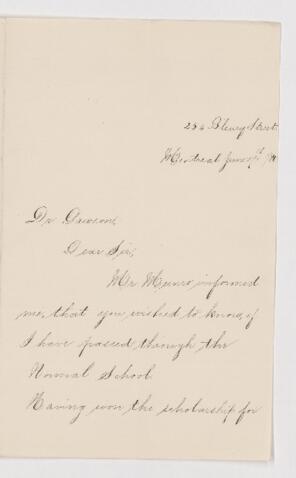 254 Bleury Street.
Montreal June
Dr Dawson,
Dear Sir,
Mr Munro informed
me, that you wished to know, if
I have passed through the
Normal School.
Having won the scholarship for